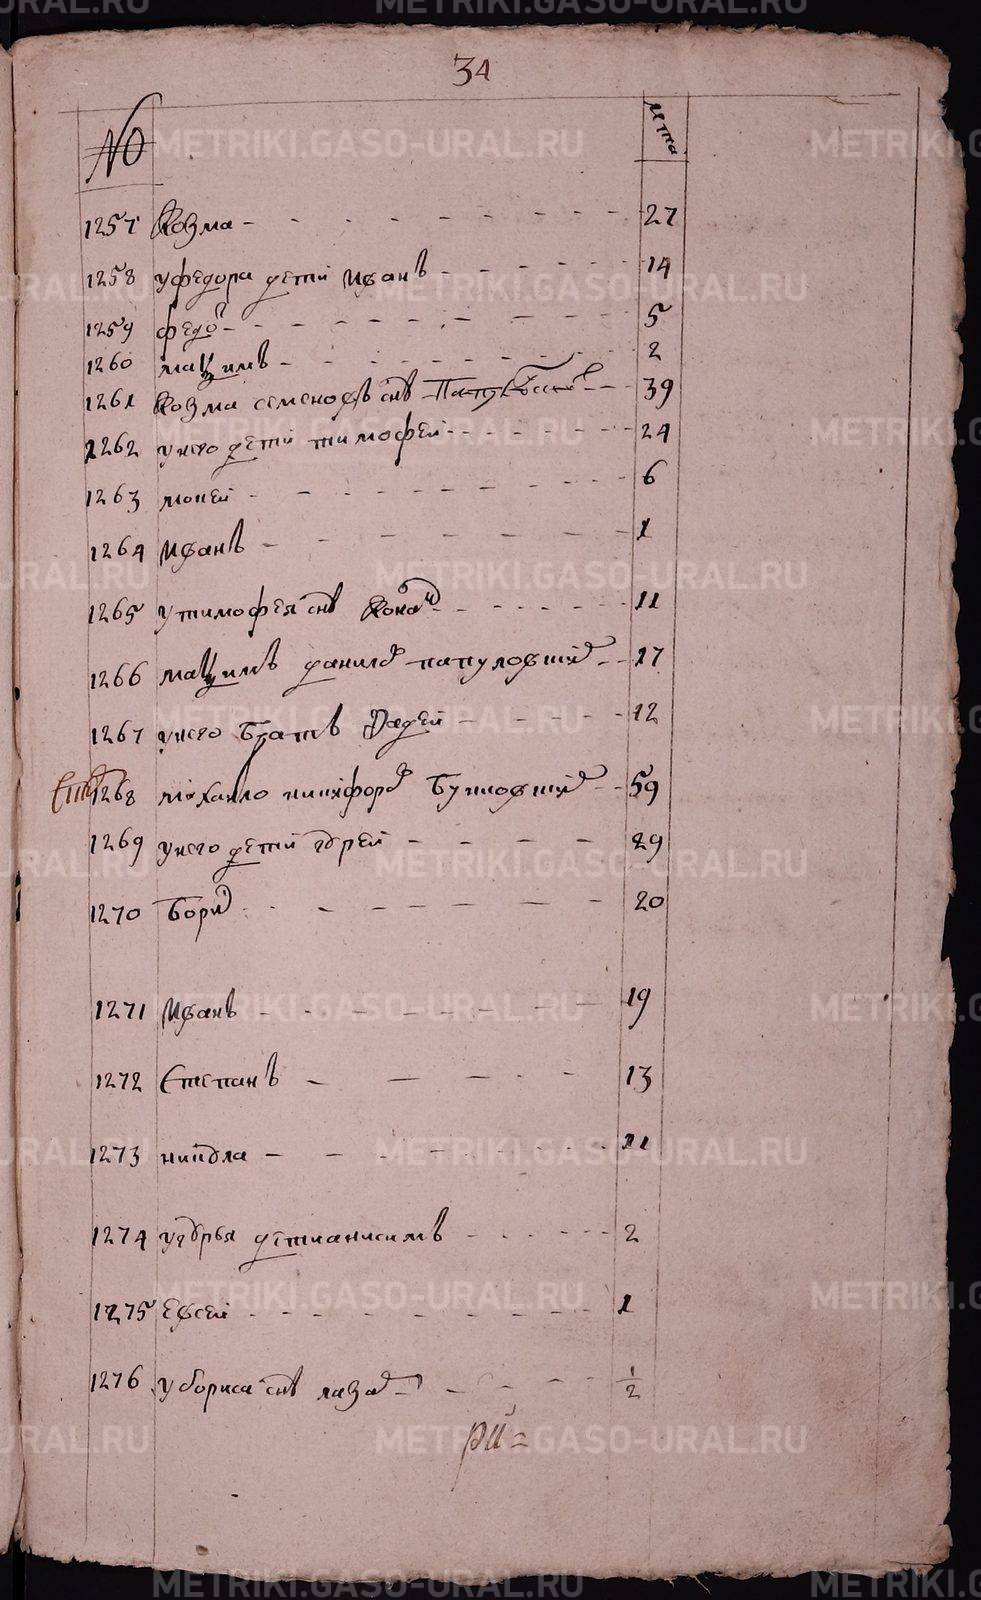 34
№ лета
1257 Козма 27
1258 у федора дети иванъ 14
1259 федор 5
1260 максимъ 2
1261 Козма семеновъ снъ 39
1262 у него дети тимофеи 24
1263 мокеи 6
1264 иванъ 1
1265 у тимофея снъ Конд 11
1266 максимъ данилов папуловских 17
1267 у него братъ Фадеи 12
1268 михаило никифоров 59
1269 у него дети 29
1270 Борис 20
1271 иванъ 19
1272 Степанъ 13
1273 никола 11
1274 дети анисимъ 2
1275 Евсеи 1
1276 у бориса снъ лазар 1/2
METRIKI.GASO-URAL.RU